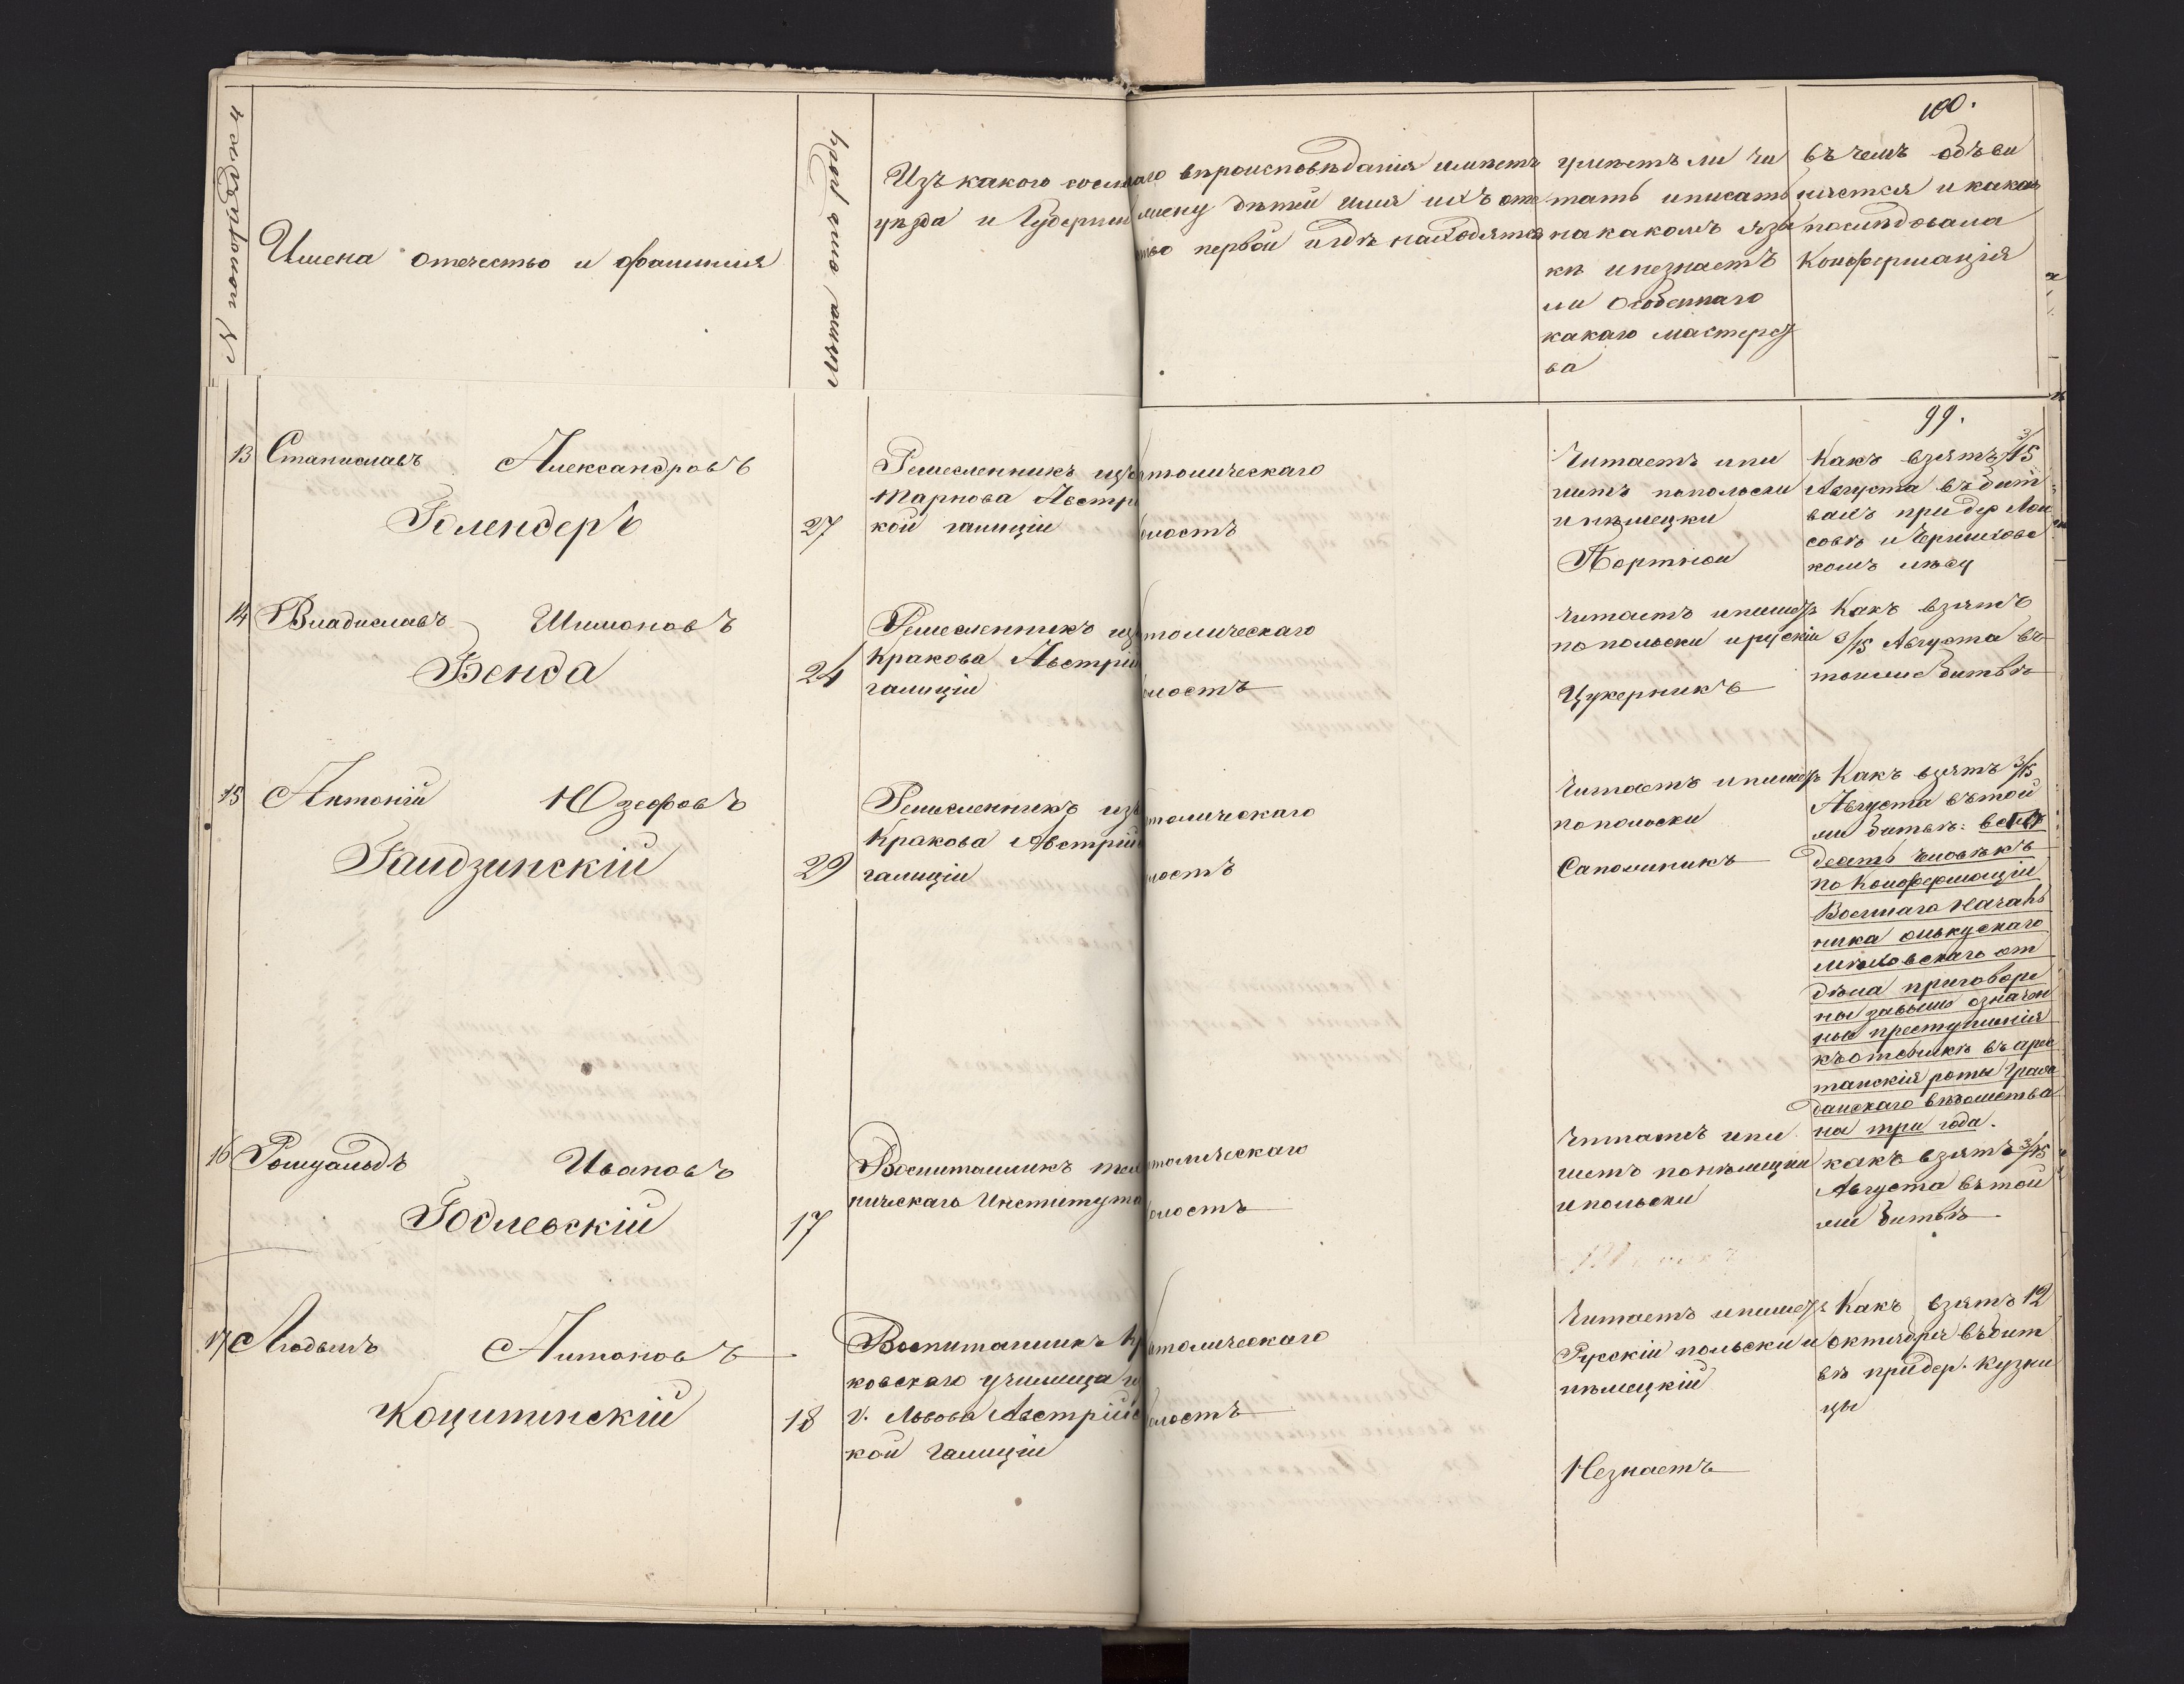 100.
№ по порядку
Имена отечество и фамилия
Лѣта отъ роду
Изъ какого сосл
уѣзда и Губерніи
вѣроисповѣданія имѣетъ
жену дѣтей имя ихъ оте
первой и гдѣ находятся
умѣетъ ли чи
тать и писать
на какомъ язы
кѣ и незнаетъ
ли особеннаго
какаго мастерст
ва
въ чемъ объви
няется и какая
послѣдовала
Конфермація
99.
13 Станиславъ Александровъ
Голендеръ
27
Ремесленникъ изъ
Тарнова Австрій
кой галиціи
толическаго
лостъ
Читаетъ и пи
шетъ по польски
и нѣмецки
Портной
Какъ взятъ 3/15
Августа въ бит
вахъ при дер
совкѣ и
комъ лѣсу
14 Владиславъ Шимоновъ
Бенда
24
Ремесленникъ изъ
Кракова Австрій
галиціи
толическаго
лостъ
Читаетъ и пишетъ
по польски и рускіи
Цукерникъ
Какъ взятъ
3/15 Августа въ
тойже битвѣ
15 Антоній Юзефовъ
Гаидзинскій
29
Ремесленникъ изъ
Кракова Австрій
галиціи
толическаго
лостъ
Читаетъ и пишетъ
по польски
Сапожникъ
Какъ взятъ 3/15
Августа въ той
же битвѣ:
деятъ человѣкъ
по Конфермаціи
Военнаго Началь
ника олькускаго
мѣховскаго от
дѣла приговоре
ны за выше означен
ные преступленія
къ отсылкѣ въ арес
танскія роты граж
данскаго вѣдомства
на три года.
16 Ромуальдъ Ивановъ
Годлевскій
17
Воспитанникъ тех
ническаго Института
толическаго
лостъ
Читаетъ и пи
шетъ понѣмецки
и польски
какъ взятъ 3/15
Августа въ той
же битвѣ
17 Людвигъ Антоновъ
Коцитинскій
18
Воспитанникъ Кр
ковскаго училища и
г. Львова Австрійс
кой Галиціи
толическаго
лостъ
Читаетъ и пишетъ
Рускіи польски и
нѣмецкій
Незнаетъ
Какъ взятъ 12
октября въ бит
вѣ при дер. Кузни
цы